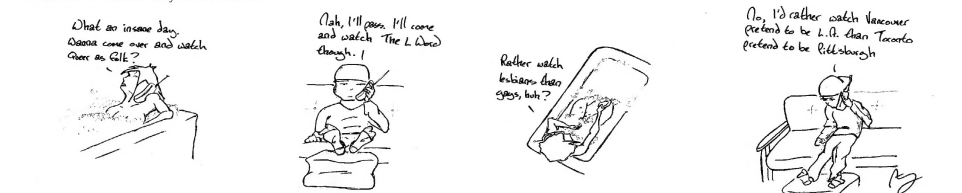 What an insane day.
Wanna come over and watch
Queer as Folk?
Nah, I'll pass. I'll come
and watch The L Word
though.
Rather watch
lesbians than
gays, huh?
No, I'd rather watch Vancouver
pretend to be L.A. than Toronto
pretend to be Pittsburgh